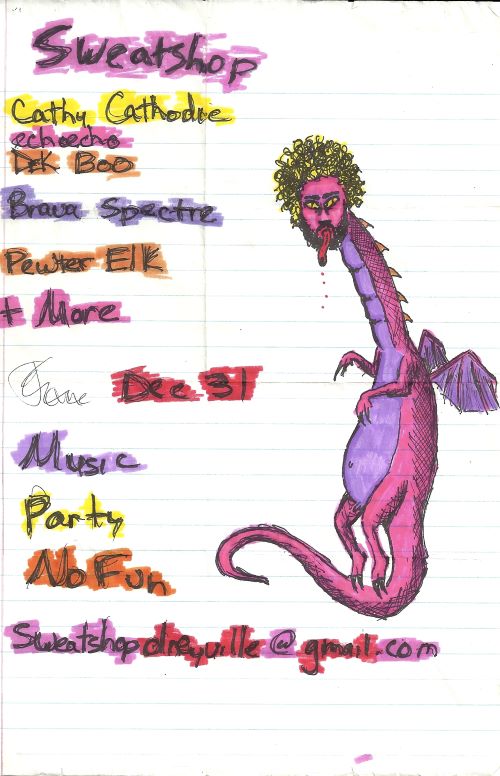 Sweatshop
Cathy Cathodie
echoecho
Brava Spectre
Pewter Elk
+ More
Dec 31
Music
Party
No Fun
Sweatshopdreyville@gmail.com